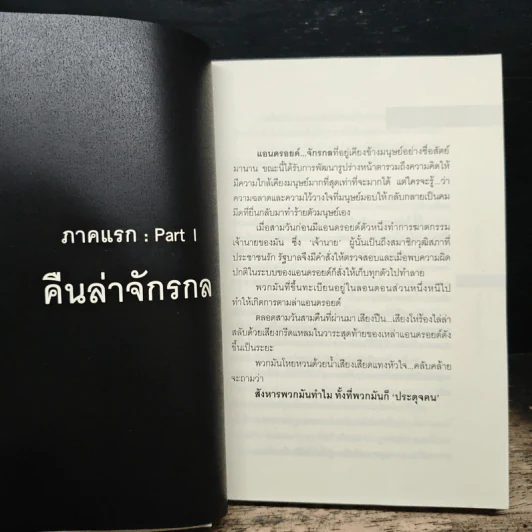 ภาคแรก : Part I
คืนล่าจักรกล
แอนดรอยด์...จักรกลที่อยู่เคียงข้างมนุษย์อย่างซื่อสัตย์
มานาน ขณะนี้ได้รับการพัฒนารูปร่างหน้าตารวมถึงความคิดให้
มีความใกล้เคียงมนุษย์มากที่สุดเท่าที่จะมากได้ แต่ใครจะรู้...ว่า
ความฉลาดและความไว้วางใจที่มนุษย์มอบให้ กลับกลายเป็นคม
มีดที่ยื่นกลับมาทำร้ายตัวมนุษย์เอง
เมื่อสามวันก่อนมีแอนดรอยด์ตัวหนึ่งทำการฆาตกรรม
เจ้านายของมัน ซึ่ง ‘เจ้านาย’ ผู้นั้นเป็นถึงสมาชิกวุฒิสภาที่
ประชาชนรัก รัฐบาลจึงมีคำสั่งให้ตรวจสอบและเมื่อพบความผิด
ปกติในระบบของแอนดรอยด์ก็สั่งให้เก็บทุกตัวไปทำลาย
พวกมันที่ขึ้นทะเบียนอยู่ในลอนดอนส่วนหนึ่งหนีไป
ทำให้เกิดการตามล่าแอนดรอยด์
ตลอดสามวันสามคืนที่ผ่านมา เสียงปืน...เสียงโห่ร้องไล่ล่า
สลับด้วยเสียงกรีดแหลมในวาระสุดท้ายของเหล่าแอนดรอยด์ดัง
ขึ้นเป็นระยะ
พวกมันโหยหวนด้วยน้ำเสียงเสียดแทงหัวใจ...คลับคล้าย
จะถามว่า
สังหารพวกมันทำไม ทั้งที่พวกมันก็ ‘ประดุจคน’